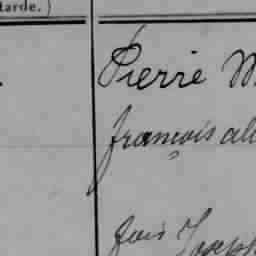 tarde.)
Pierre M
françois al
fois Joseph